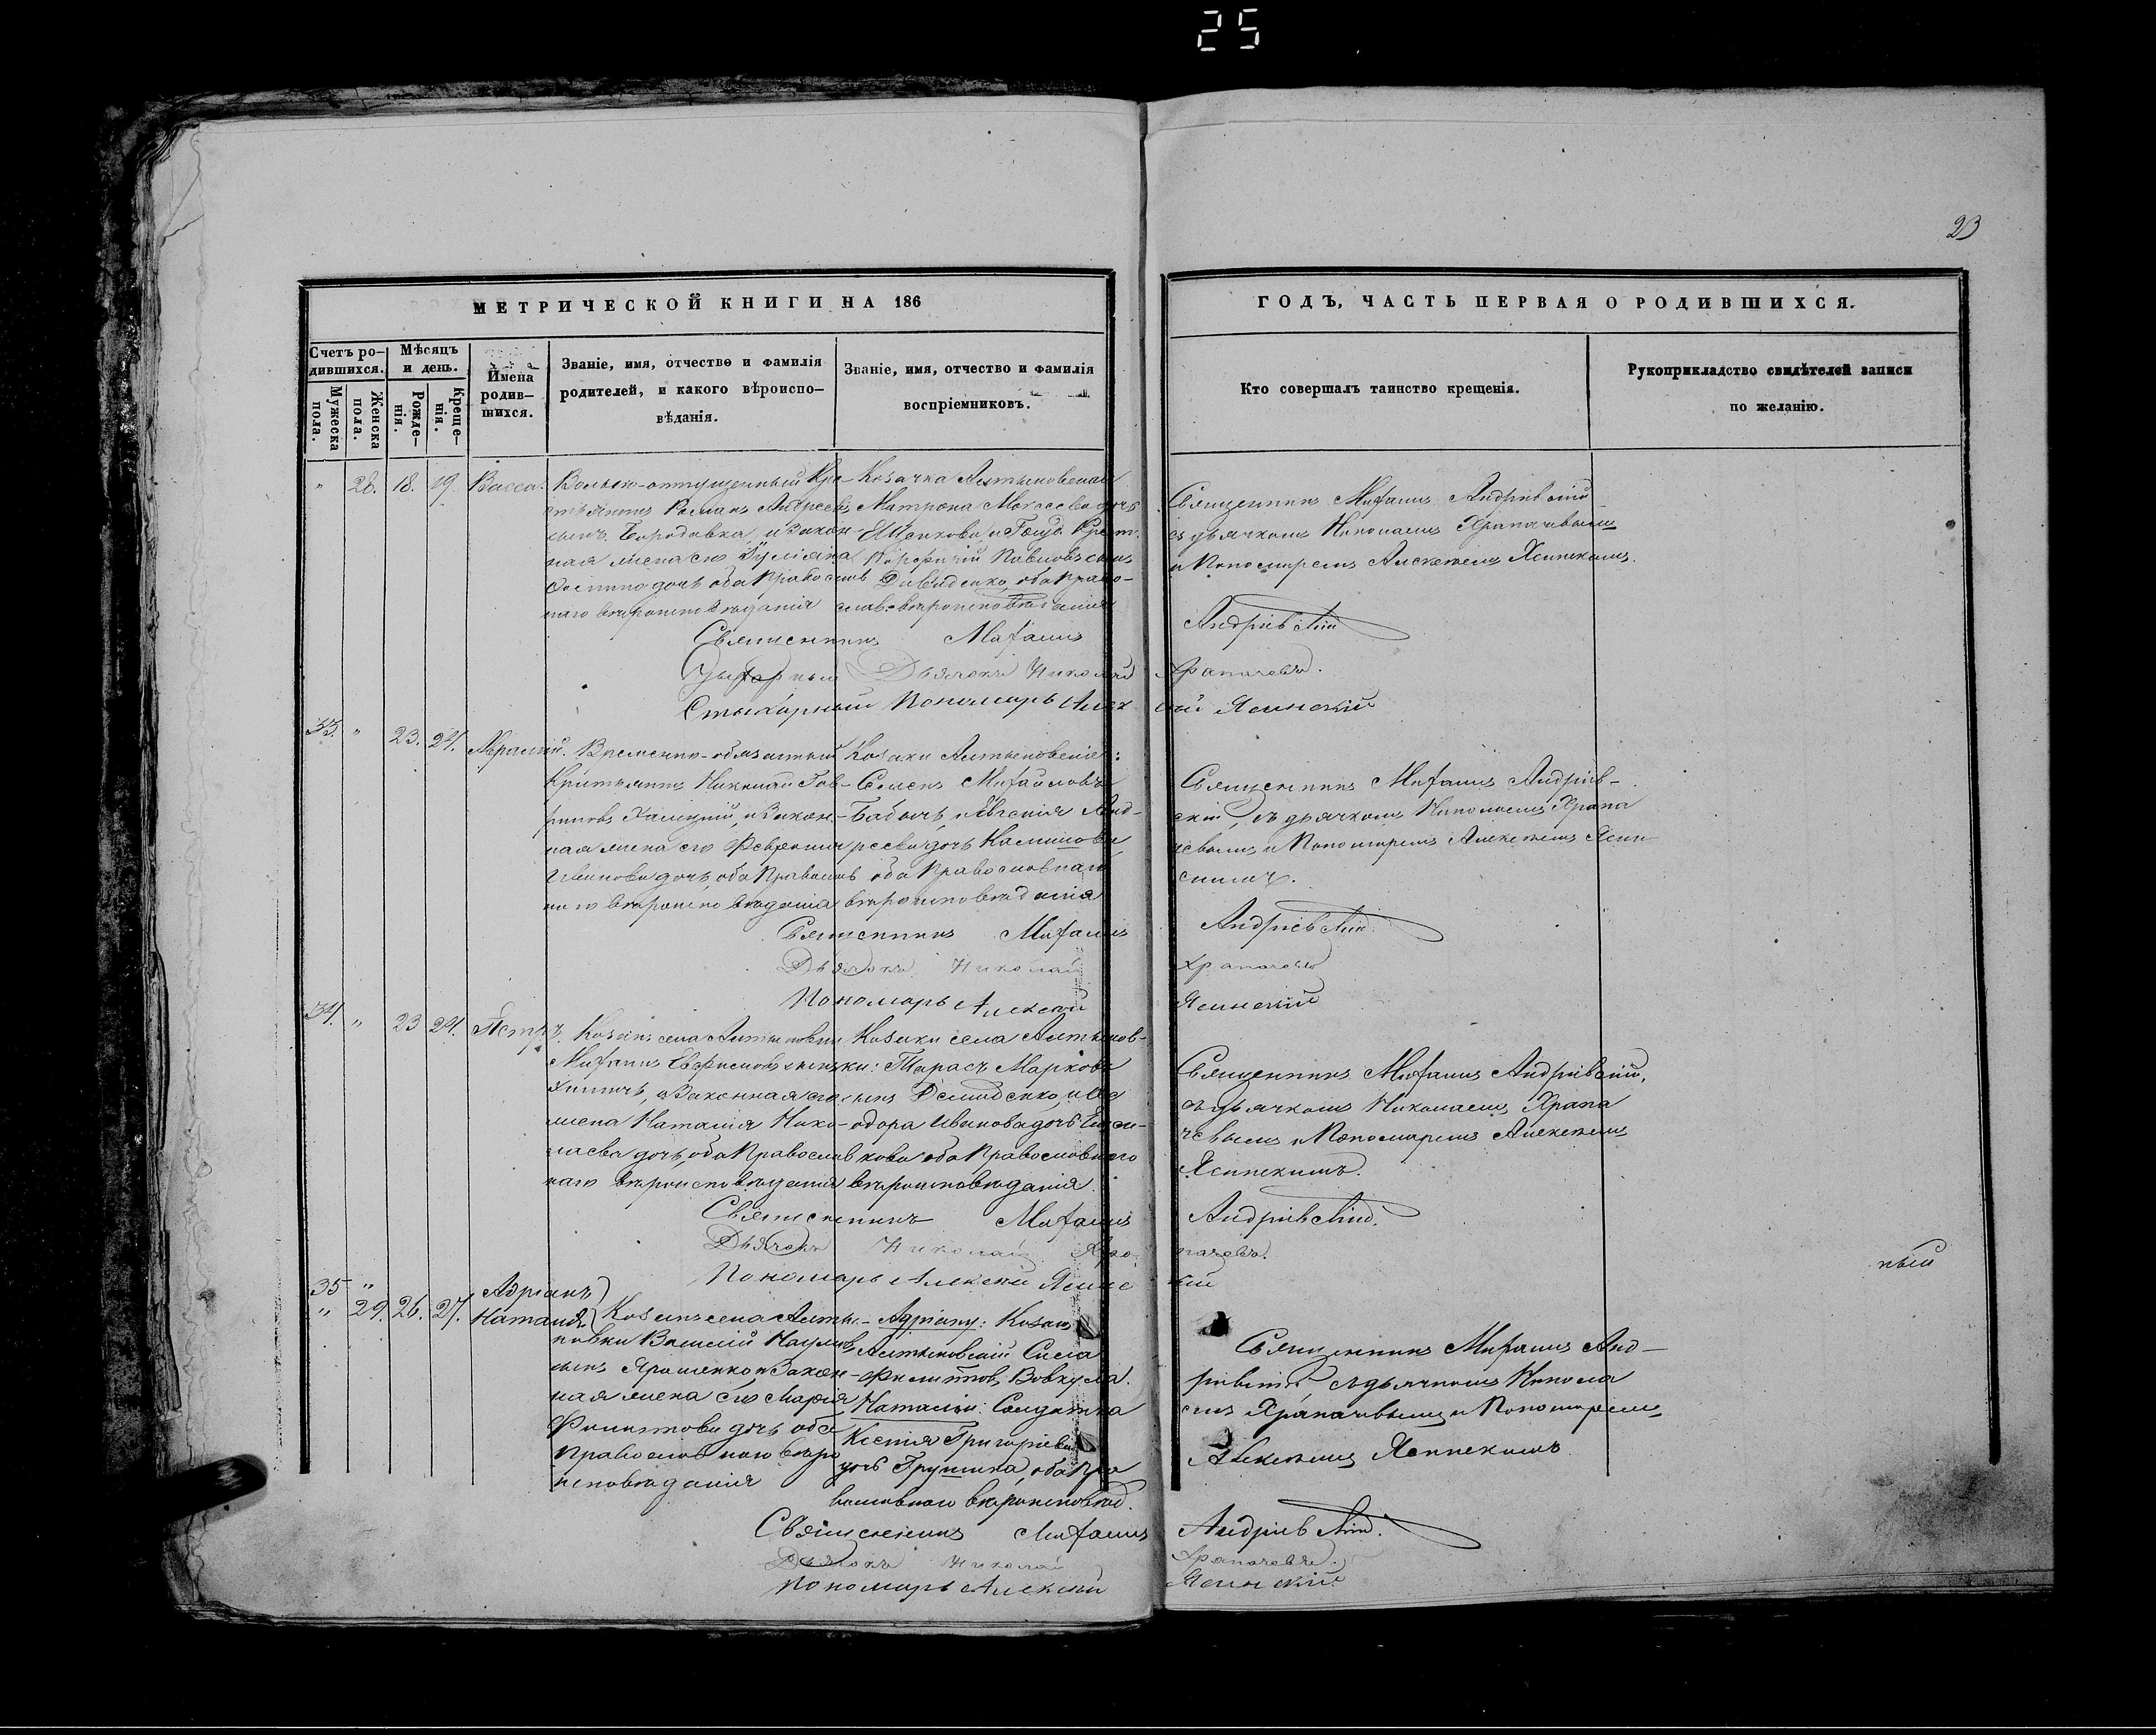 25
23
МЕТРИЧЕСКОЙ КНИГИ НА 186
ГОДЪ, ЧАСТЬ ПЕРВАЯ О РОДИВШИХСЯ.
Счетъ ро-
дившихся.
Мужеска
пола.
Женска
пола.
Мѣсяцъ
и день.
Рожде-
нія.
Креще-
нія.
Имена
родив-
шихся.
Званіе, имя, отчество и фамилія
родителей, и какого вѣроиспо-
вѣданія.
Званіе, имя, отчество и фамилія
воспріемниковъ.
Кто совершалъ таинство крещенія.
Рукоприкладство свидѣтелей записи
по желанію.
" 28. 18. 19. Васса.
Вольно-отпущенный Кре-
стьянинъ Романъ Андреевъ
сынъ Бородавка, и Закон-
ная жена его
дочь, оба Православ
наго вѣроисповѣданія
Козачка Алтыновская
Матрона Моѵсеева дочь
и Госуд. Крест.
Порфирій Павловъ сынъ
Давиденко, оба Право-
слав. вѣроисповѣданія
Священникъ Михаилъ Андріевскій
съ дьячкомъ Николаемъ Храпачевымъ
и Пономаремъ Алексѣемъ Ясинскимъ.
Священникъ Михаилъ Андріевскій
Дьячокъ Николай Храпачевъ.
Стихарный Пономарь Алексѣй Ясинскій
33. " 23. 24.
Временно-обязанный
Крестьянинъ Николай Гав-
риловъ и Закон-
ная жена его Февронія
Иванова дочь, оба Православ
наго вѣроисповѣданія
Козаки Алтыновскіе:
Семенъ Михайловъ
Бабичъ, и Евгенія Анд-
реева дочь
оба Православнаго
вѣроисповѣданія
Священникъ Михаилъ Андріев-
скій, съ дьячкомъ Николаемъ Храпа
чевымъ и Пономаремъ Алексѣемъ Ясин
скимъ.
Священникъ Михаилъ Андріевскій.
Дьячокъ Николай Храпачевъ
Пономарь Алексѣй Ясинскій
34. " 23 24. Петръ.
Козакъ села Алтыновки
Михаилъ сынъ
и Законная его
жена Наталія Нико-
лаева дочь, оба Православ
наго вѣроисповѣданія
Козаки села Алтынов-
ки: Тарасъ Марковъ
сынъ Демиденко, и Ѳе
одора Иванова дочь
кова оба Православнаго
вѣроисповѣданія
Священникъ Михаилъ Андріевскій,
съ дьячкомъ Николаемъ Храпа
чевымъ и Пономаремъ Алексѣемъ
Ясинскимъ.
Священникъ Михаилъ Андріевскій.
Дьячокъ Николай Храпачевъ.
Пономарь Алексѣй Ясинскій
ный
35 " Адріанъ
" 29. 26. 27. Наталія
Козакъ села Алты-
новки Василій Наумовъ
сынъ Ярошенко и Закон-
ная жена его Марія
Филиппова дочь оба
Православнаго вѣро
исповѣданія
Адріану: Козакъ
Алтыновскій Сила
Филипповъ Вовкула.
Наталіи: Солдатка
Ксенія Григоріева
дочь оба Пра
вославнаго вѣроисповѣд.
Священникъ Михаилъ Анд-
ріевскій, съ дьячкомъ Никола
емъ Храпачевымъ и Пономаремъ
Алексѣемъ Ясинскимъ
Священникъ Михаилъ Андріевскій.
Дьячокъ Николай Храпачевъ.
Пономарь Алексѣй Ясинскій